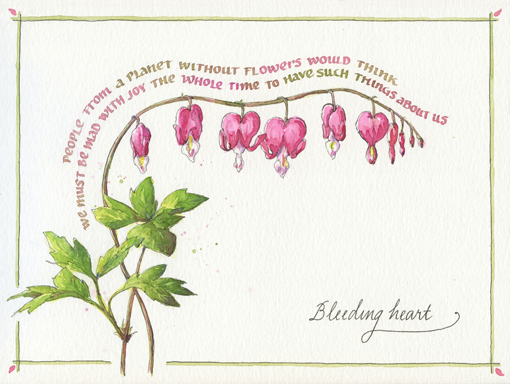 PEOPLE FROM A PLANET WITHOUT FLOWERS WOULD THINK
WE MUST BE MAD WITH JOY THE WHOLE TIME TO HAVE SUCH THINGS ABOUT US
Bleeding heart